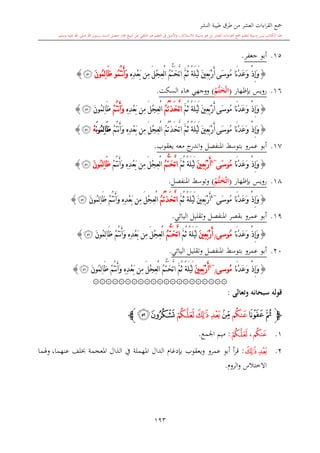 جمع القراءات العشر من طرق طيبة النشر
١٥. أبو جعفر.
﴿ وَإِذْ وَعَدْنَا مُوسَى أَرْبَعِينَ لَيْلَةً ثُمَّ اتَّخَذْتُمُ الْعِجْلَ مِن بَعْدِهِ وَأَنتُمْ ظَالِمُونَ ﴾
١٦. رويس بإظهار (اتَّخَذْتُمُ) ووجهي هاء السكت.
﴿ وَإِذْ وَعَدْنَا مُوسَى أَرْبَعِينَ لَيْلَةً ثُمَّ اتَّخَذْتُمُ الْعِجْلَ مِن بَعْدِهِ وَأَنتُمْ ظَالِمُونَ ﴾
﴿ وَإِذْ وَعَدْنَا مُوسَى أَرْبَعِينَ لَيْلَةً ثُمَّ اتَّخَذْتُمُ الْعِجْلَ مِن بَعْدِهِ وَأَنتُمْ ظَالِمُونَهْ ﴾
١٧. أبو عمرو بتوسط المنفصل واندرج معه يعقوب.
﴿ وَإِذْ وَعَدْنَا مُوسَى أَرْبَعِينَ لَيْلَةً ثُمَّ اتَّخَذتُّمُ الْعِجْلَ مِن بَعْدِهِ وَأَنتُمْ ظَالِمُونَ ﴾
١٨. رويس بإظهار (اتَّخَذْتُمُ) وتوسط المنفصل.
﴿ وَإِذْ وَعَدْنَا مُوسَى أَرْبَعِينَ لَيْلَةً ثُمَّ اتَّخَذْتُمُ الْعِجْلَ مِن بَعْدِهِ وَأَنتُمْ ظَالِمُونَ ﴾
١٩. أبو عمرو بقصر المنفصل وتقليل اليائي.
﴿ وَإِذْ وَعَدْنَا مُوسَى أَرْبَعِينَ لَيْلَةً ثُمَّ اتَّخَذتُّمُ الْعِجْلَ مِن بَعْدِهِ وَأَنتُمْ ظَالِمُونَ ﴾
٢٠. أبو عمرو بتوسط المنفصل وتقليل اليائي.
﴿ وَإِذْ وَعَدْنَا مُوسَى أَرْبَعِينَ لَيْلَةً ثُمَّ اتَّخَذتُّمُ الْعِجْلَ مِن بَعْدِهِ وَأَنتُمْ ظَالِمُونَ ﴾
قوله سبحانه وتعالى :
﴿ ثُمَّ عَفَوْنَا عَنكُم مِّنۢ بَعْدِ ذَٰلِكَ لَعَلَّكُمْ تَشْكُرُونَ ٥٢ ﴾
١. عَنكُم ، لَعَلَّكُمْ : ميم الجمع.
٢. بَعْدِ ذَٰلِكَ : قرأ أبو عمرو ويعقوب بإدغام الدال المهملة في الذال المعجمة بخلف عنهما، ولهما
الاختلاس والروم.
١٩٣